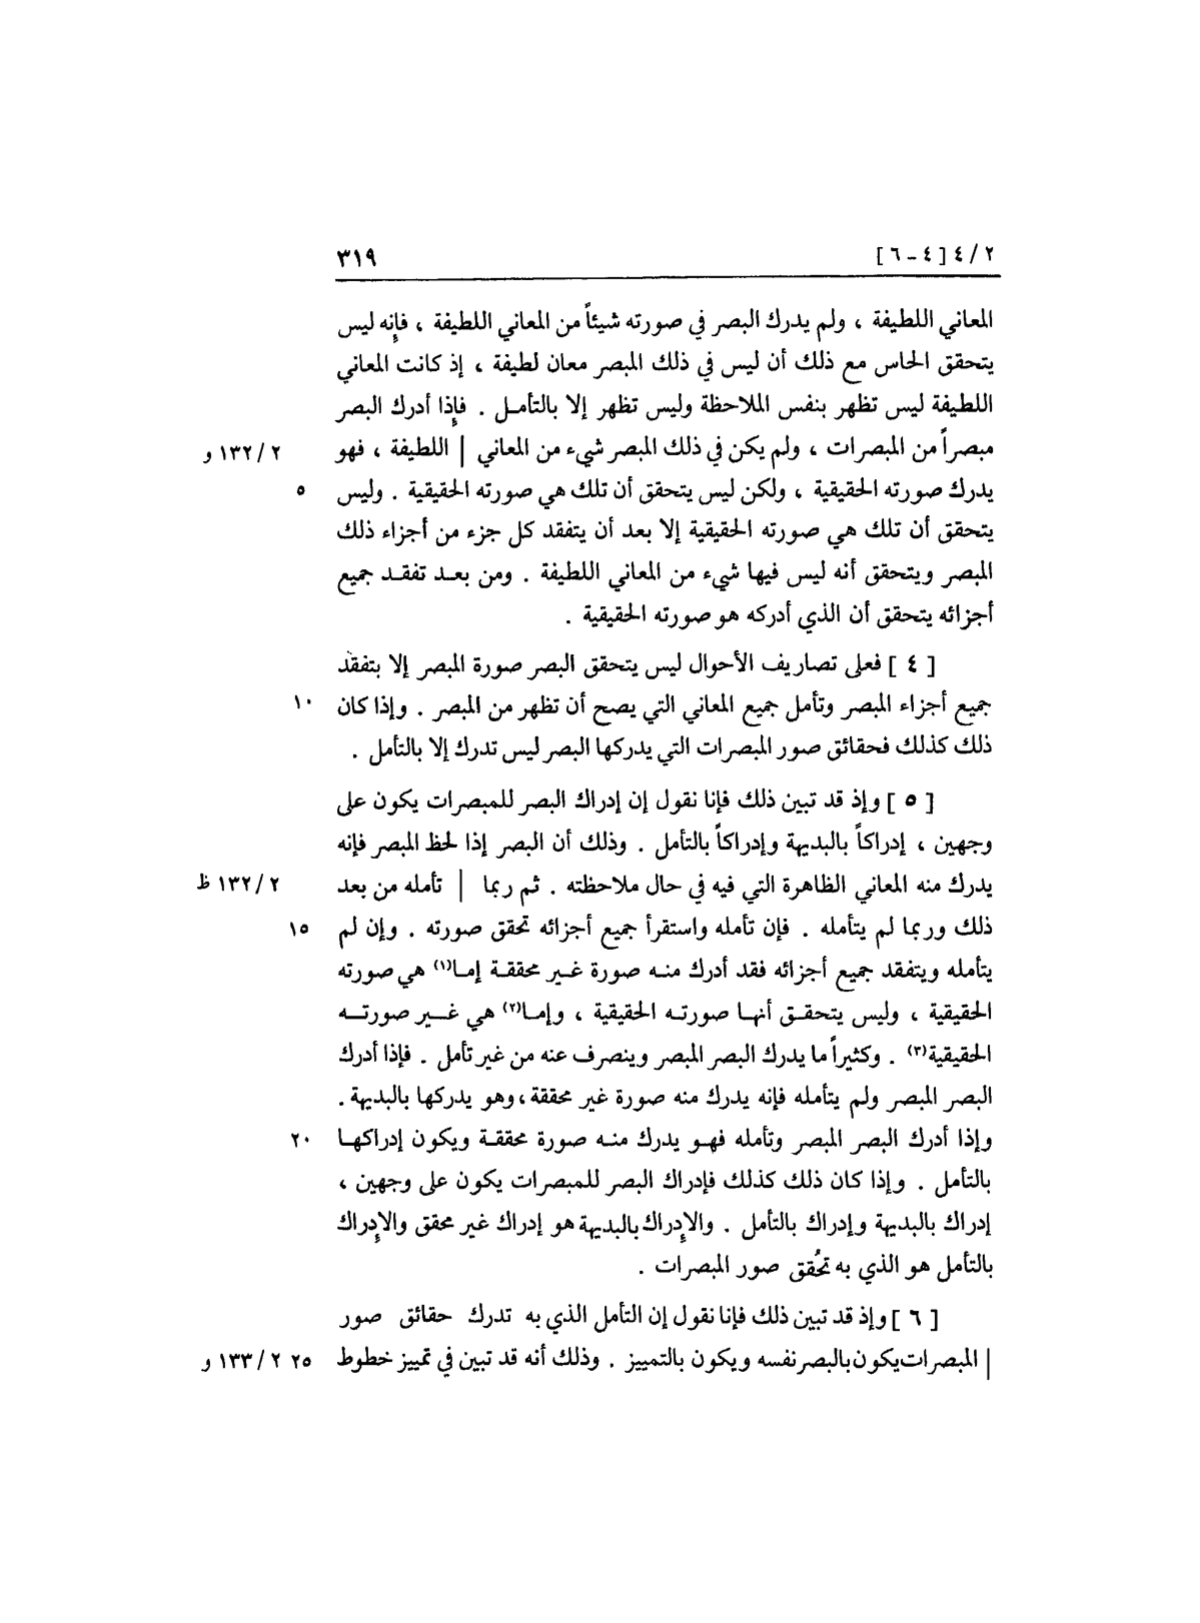 ٢ / ٤ [ ٤ – ٦ ] ٣١٩
المعاني اللطيفة ، ولم يدرك البصر في صورته شيئاً من المعاني اللطيفة ، فإنه ليس
يتحقق الحاس مع ذلك أن ليس في ذلك المبصر معان لطيفة ، إذ كانت المعاني
اللطيفة ليس تظهر بنفس الملاحظة وليس تظهر إلا بالتأمـل . فإذا أدرك البصر
مبصراً من المبصرات ، ولم يكن في ذلك المبصر شيء من المعاني | اللطيفة ، فهو ٢ / ١٣٢ و
يدرك صورته الحقيقية ، ولكن ليس يتحقق أن تلك هي صورته الحقيقية . وليس ٥
يتحقق أن تلك هي صورته الحقيقية إلا بعد أن يتفقد كل جزء من أجزاء ذلك
المبصر ويتحقق أنه ليس فيها شيء من المعاني اللطيفة . ومن بعـد تفقـد جميع
أجزائه يتحقق أن الذي أدركه هو صورته الحقيقية .
[ ٤ ] فعلى تصاريف الأحوال ليس يتحقق البصر صورة المبصر إلا بتفقد
جميع أجزاء المبصر وتأمل جميع المعاني التي يصح أن تظهر من المبصر . وإذا كان ١٠
ذلك كذلك فحقائق صور المبصرات التي يدركها البصر ليس تدرك إلا بالتأمل .
[ ٥ ] وإذ قد تبين ذلك فإنا نقول إن إدراك البصر للمبصرات يكون على
وجهين ، إدراكاً بالبديهة وإدراكاً بالتأمل . وذلك أن البصر إذا لحظ المبصر فإنه
يدرك منه المعاني الظاهرة التي فيه في حال ملاحظته . ثم ربما | تأمله من بعد ٢ / ١٣٢ ظ
ذلك وربما لم يتأمله . فإن تأمله واستقرأ جميع أجزائه تحقق صورته . وإن لم ١٥
يتأمله ويتفقد جميع أجزائه فقد أدرك منـه صورة غـير محققـة إمـا(١) هي صورته
الحقيقية ، وليس يتحقـق أنهـا صورتـه الحقيقية ، وإمـا(٢) هي غـير صورتـه
الحقيقية(٣) . وكثيراً ما يدرك البصر المبصر وينصرف عنه من غير تأمل . فإذا أدرك
البصر المبصر ولم يتأمله فإنه يدرك منه صورة غير محققة ، وهو يدركها بالبديهة .
وإذا أدرك البصر المبصر وتأمله فهـو يدرك منـه صورة محققـة ويكون إدراكهـا ٢٠
بالتأمل . وإذا كان ذلك كذلك فإدراك البصر للمبصرات يكون على وجهين ،
إدراك بالبديهة وإدراك بالتأمل . والإدراك بالبديهة هو إدراك غير محقق والإدراك
بالتأمل هو الذي به تحُقق صور المبصرات .
[ ٦ ] وإذ قد تبين ذلك فإنا نقول إن التأمل الذي به تدرك حقائق صور
| المبصرات يكون بالبصر نفسه ويكون بالتمييز . وذلك أنه قد تبين في تمييز خطوط ٢٥ ٢ / ١٣٣ و